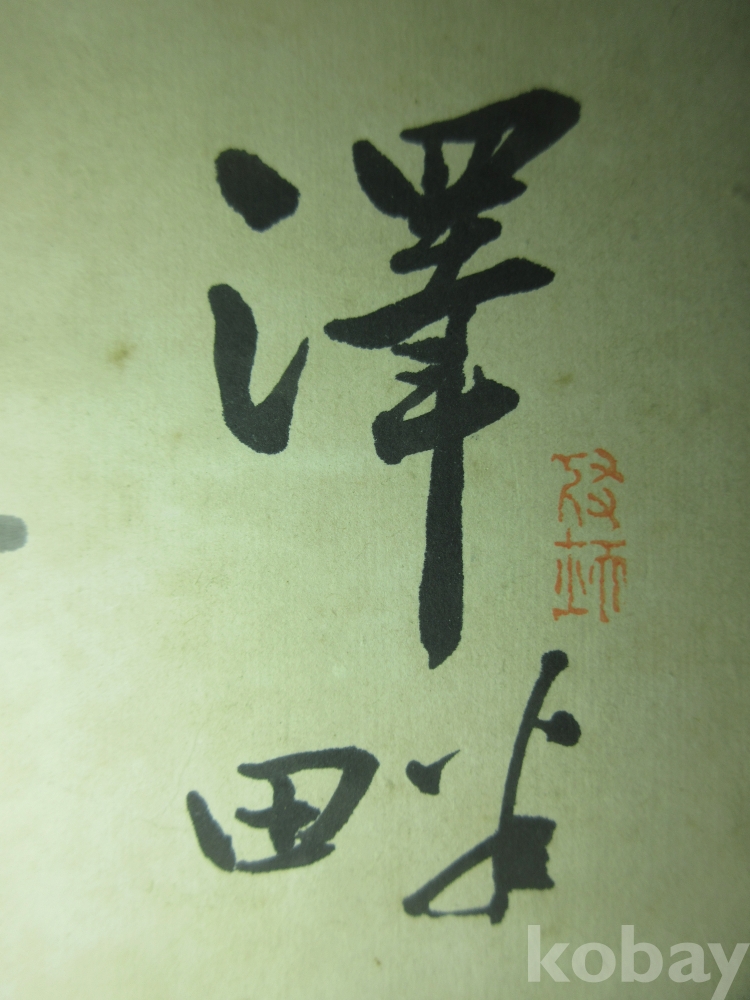 澤畔
kobay